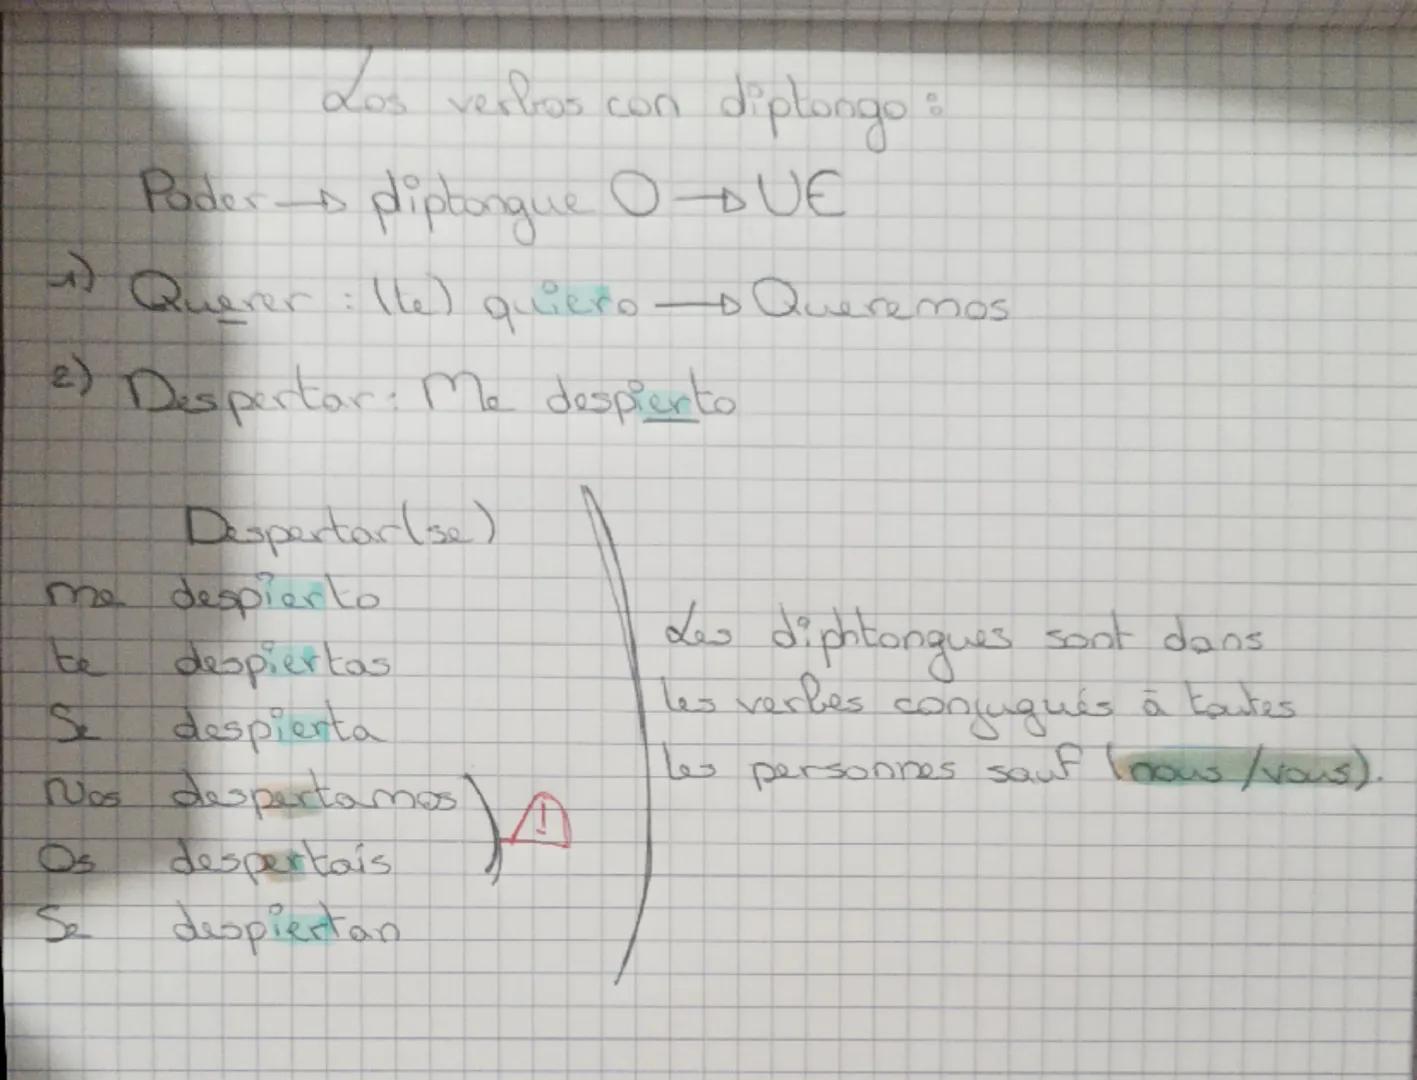 Los verbos con diptongo :
Poder → diptongue O → UE
1) Querer : (te) quiero → Queremos
2) Despertar : Me despierto
Despertar(se)
me despierto
te despiertas
Se despierta
Nos despertamos
!
Os despertais
Se despiertan
Les diphtongues sont dans
les verbes conjugués à toutes
les personnes sauf (nous/vous).